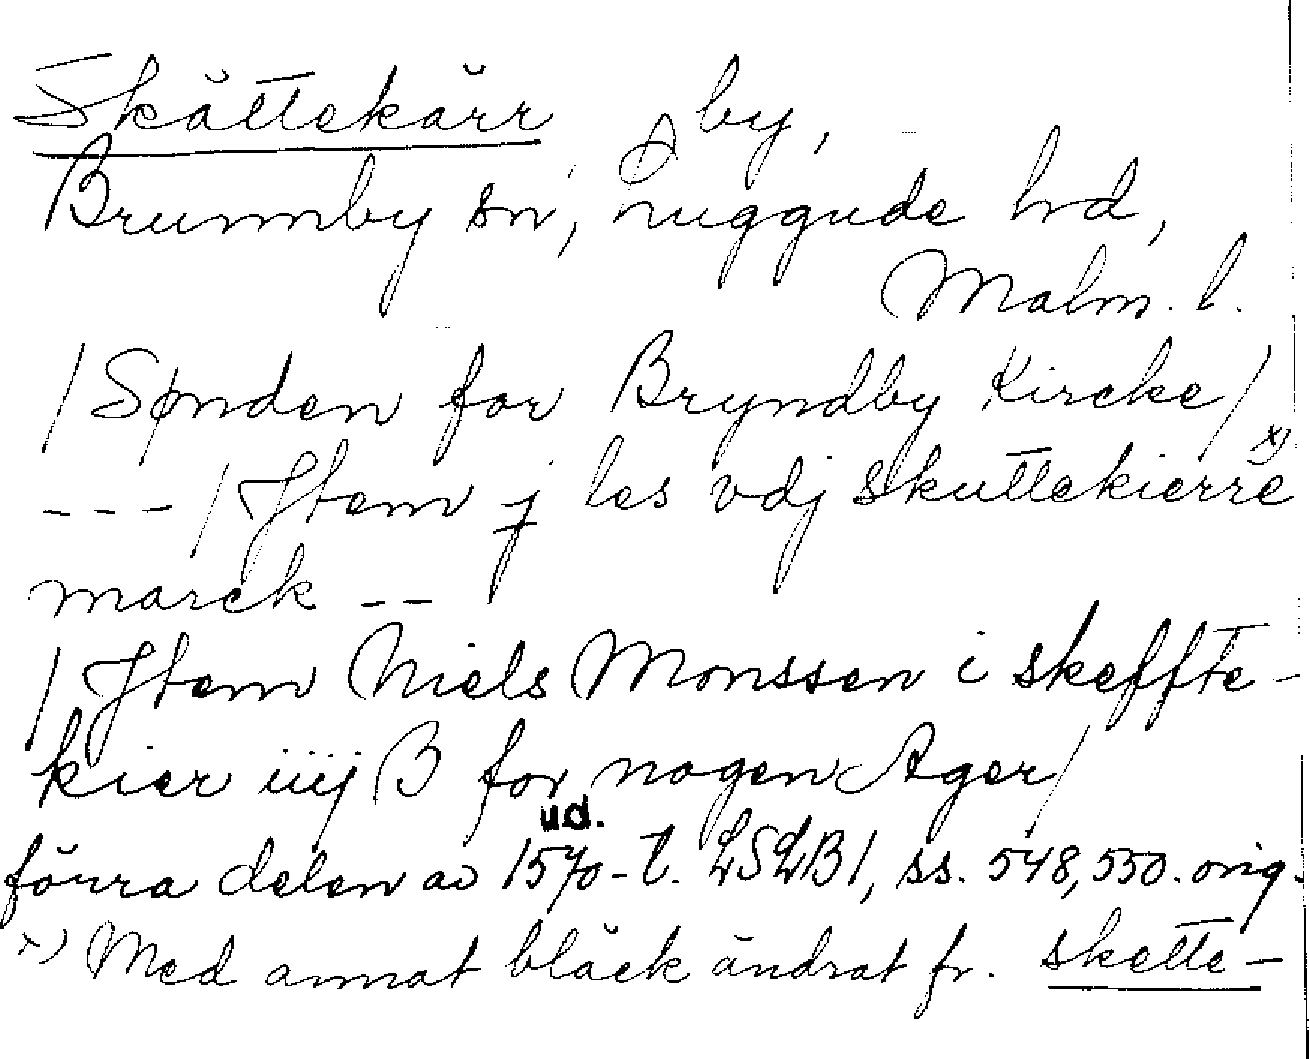 Skättekärr by,
Brunnby sn, Luggude hd,
Malm. l.
/Sønden for Bryndby Kircke/
--- /Jtem j les vdj skuttekierre x)
marck --
/Jtem Niels Monssen i skeffte-
kier iiij β for nogen Ager/
ud.
förra delen av 1570-t. LSLB1, ss. 548, 550. orig.
x) Med annat bläck ändrat fr. skette-